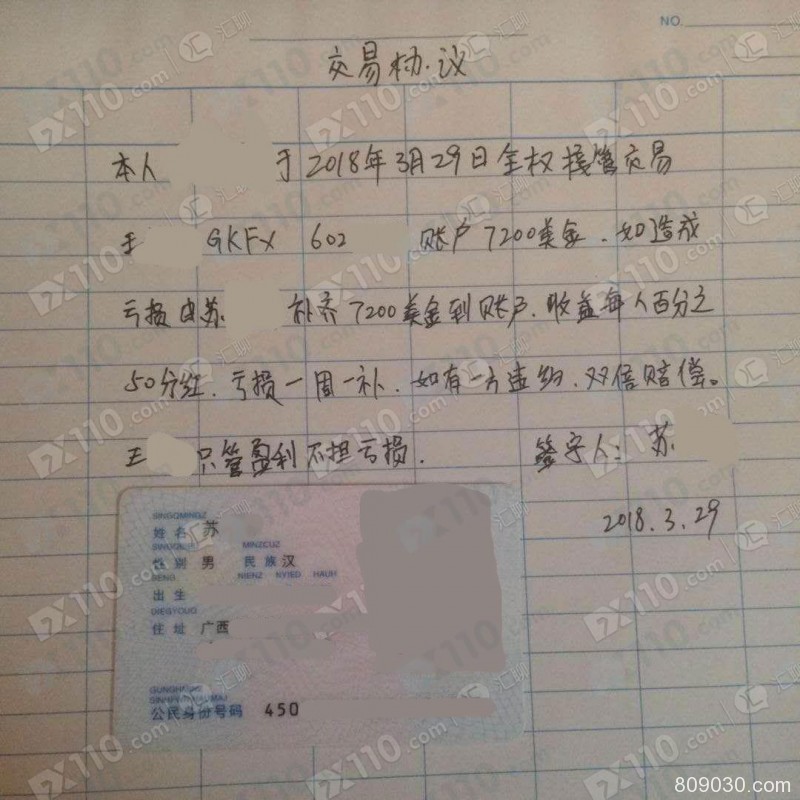 NO.
交易协议
本人 于2018年3月29日全权接管交易
王 GKFX 602 账户7200美金.如造成
亏损由苏 补齐7200美金到账户.收益每人百分之
50分红.亏损一周一补.如有一方违约.双倍赔偿。
王 只管盈利不担亏损. 签字人: 苏
2018.3.29
SINGQMINGZ
姓名 苏
SINGQBIED MINZCUZ
性别 男 民族 汉
SENG NIENZ NYIED HAUH
出生
DIEGYOUQ
住址 广西
GUNGHMINZ
公民身份号码 450
FX110.com 汇聊
809030.com